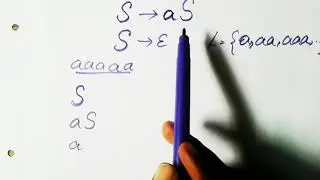 S → aS
S → ε L = {a, aa, aaa...
aaaaa
S
aS
a